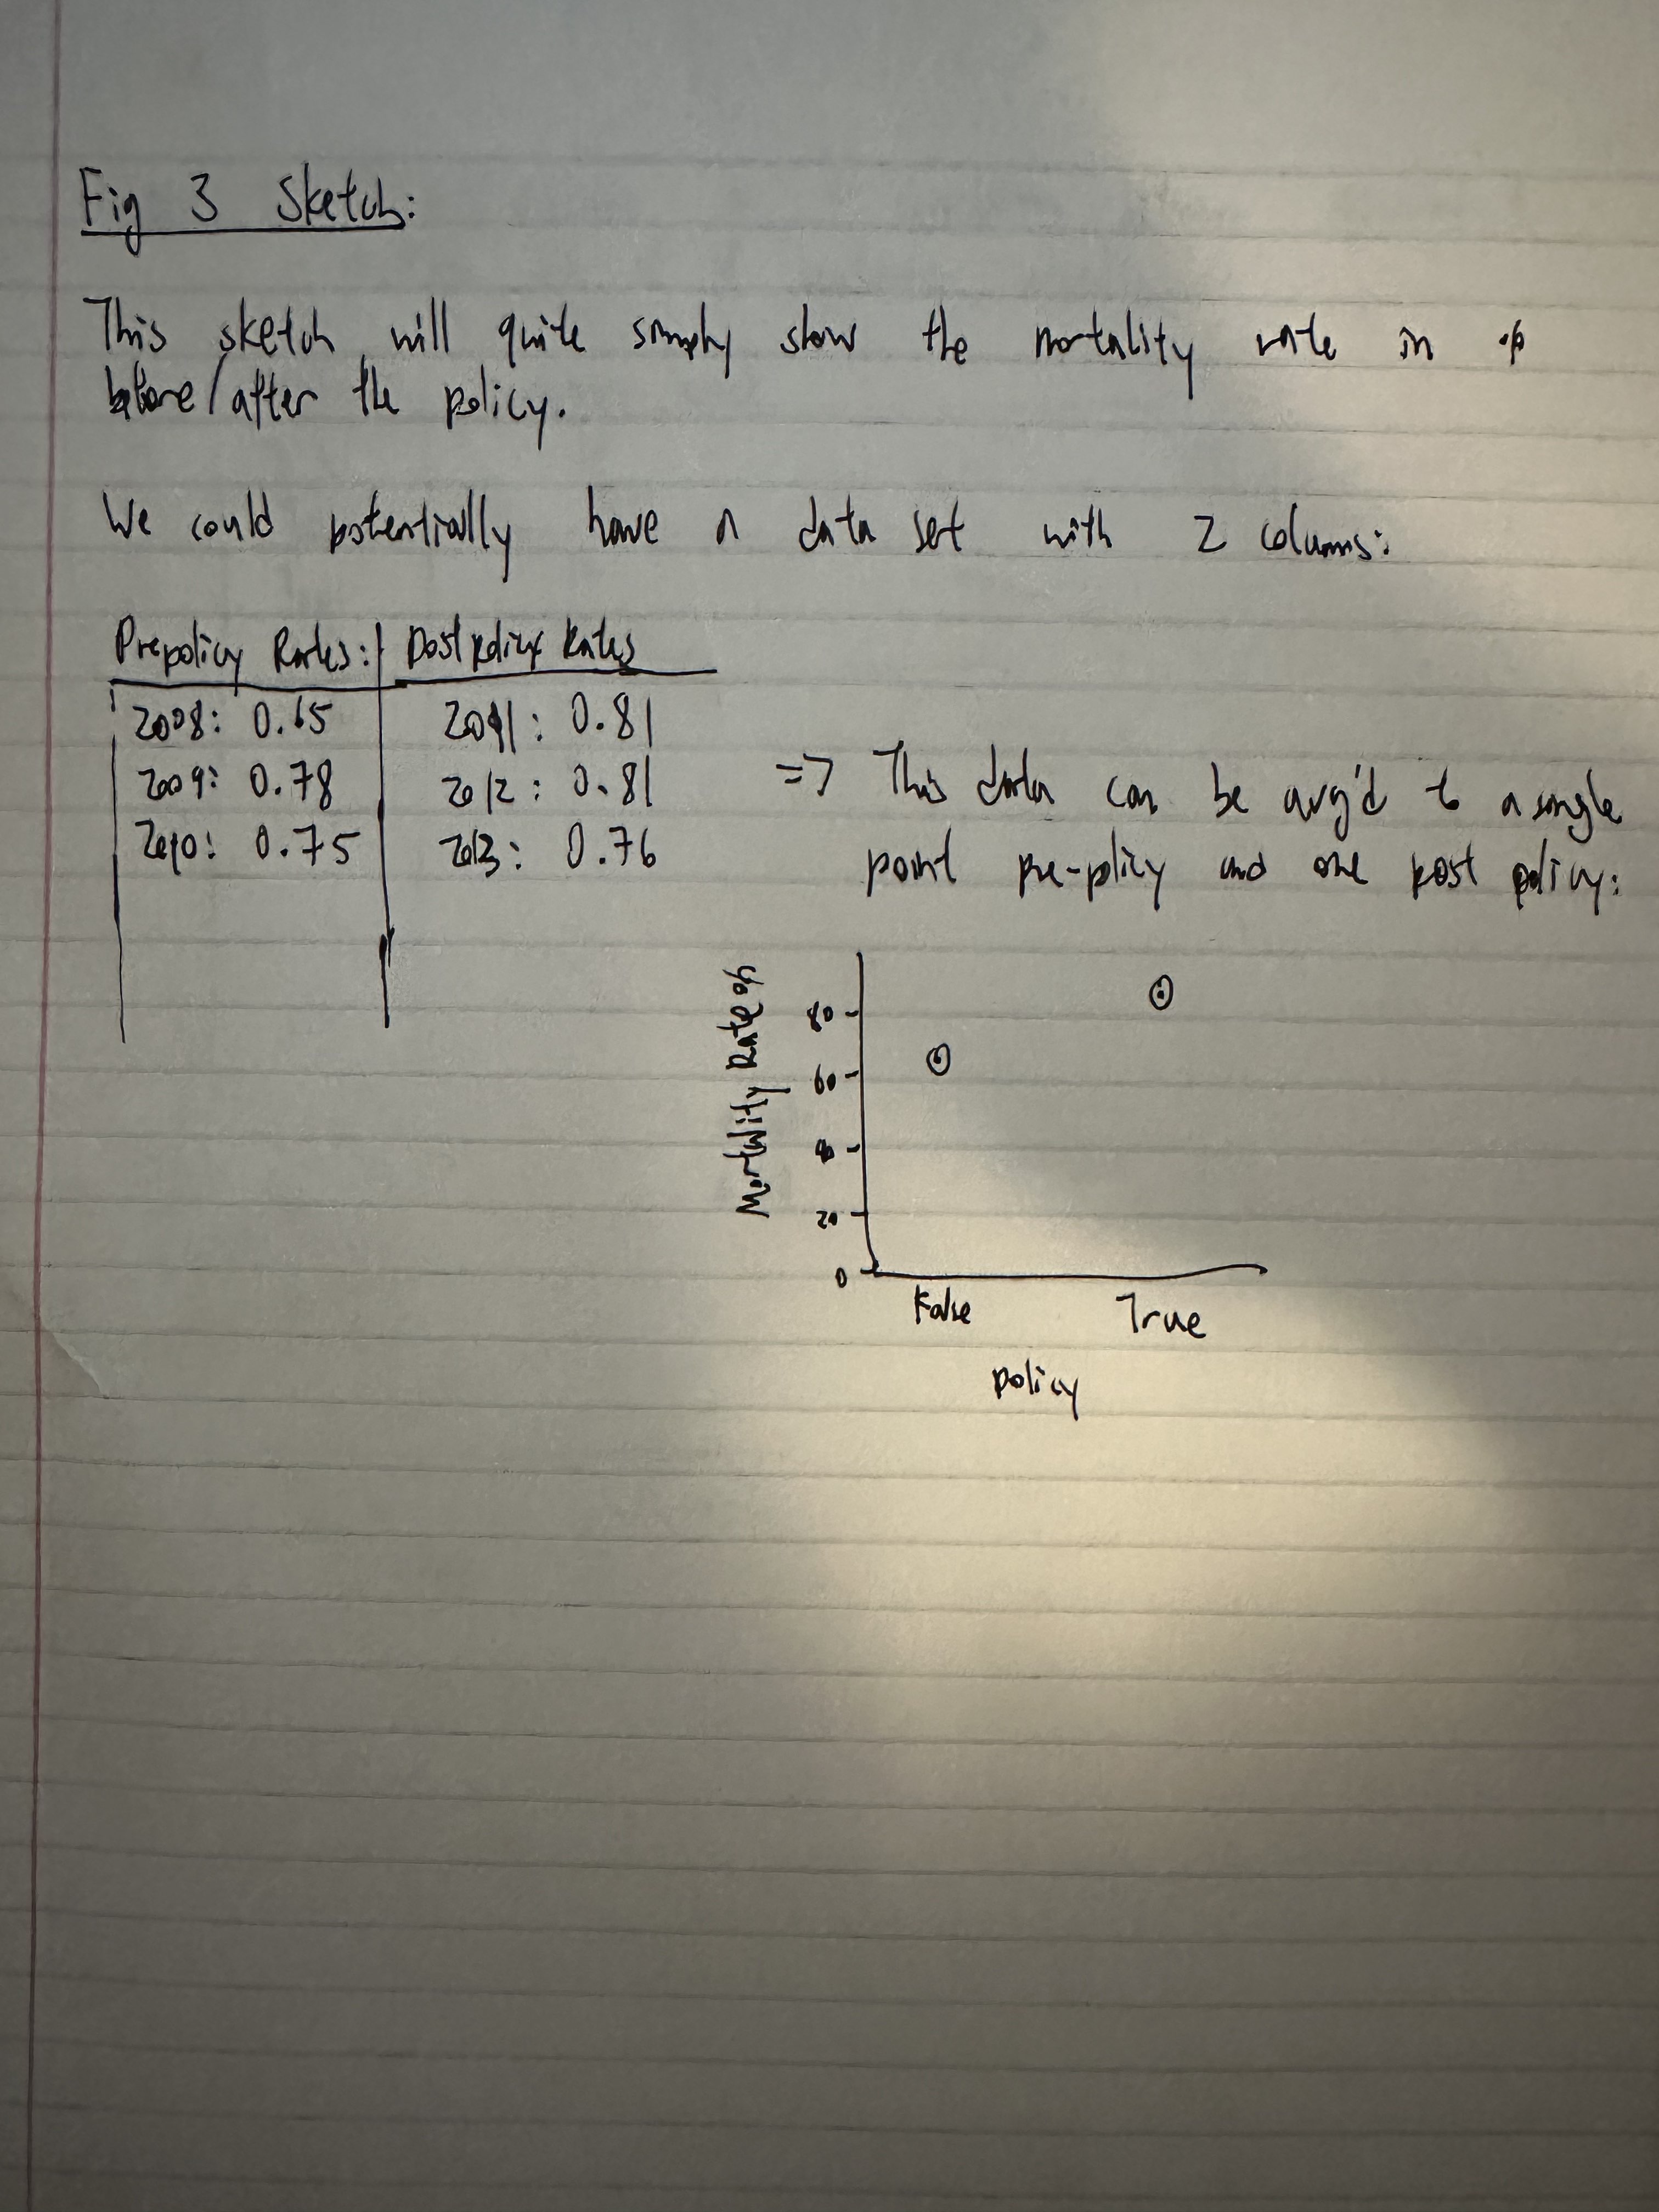 Fig 3 Sketch:
This sketch will quite simply show the mortality rate in %
before/after the policy.
We could potentially have a data set with 2 columns:
Prepolicy Rates: Postpolicy Rates
2008: 0.65 2011: 0.81
2009: 0.78 2012: 0.81
2010: 0.75 2013: 0.76
=> This data can be avg'd to a single
point pre-policy and one post policy:
Mortality Rate %
80
60
40
20
0
False True
policy